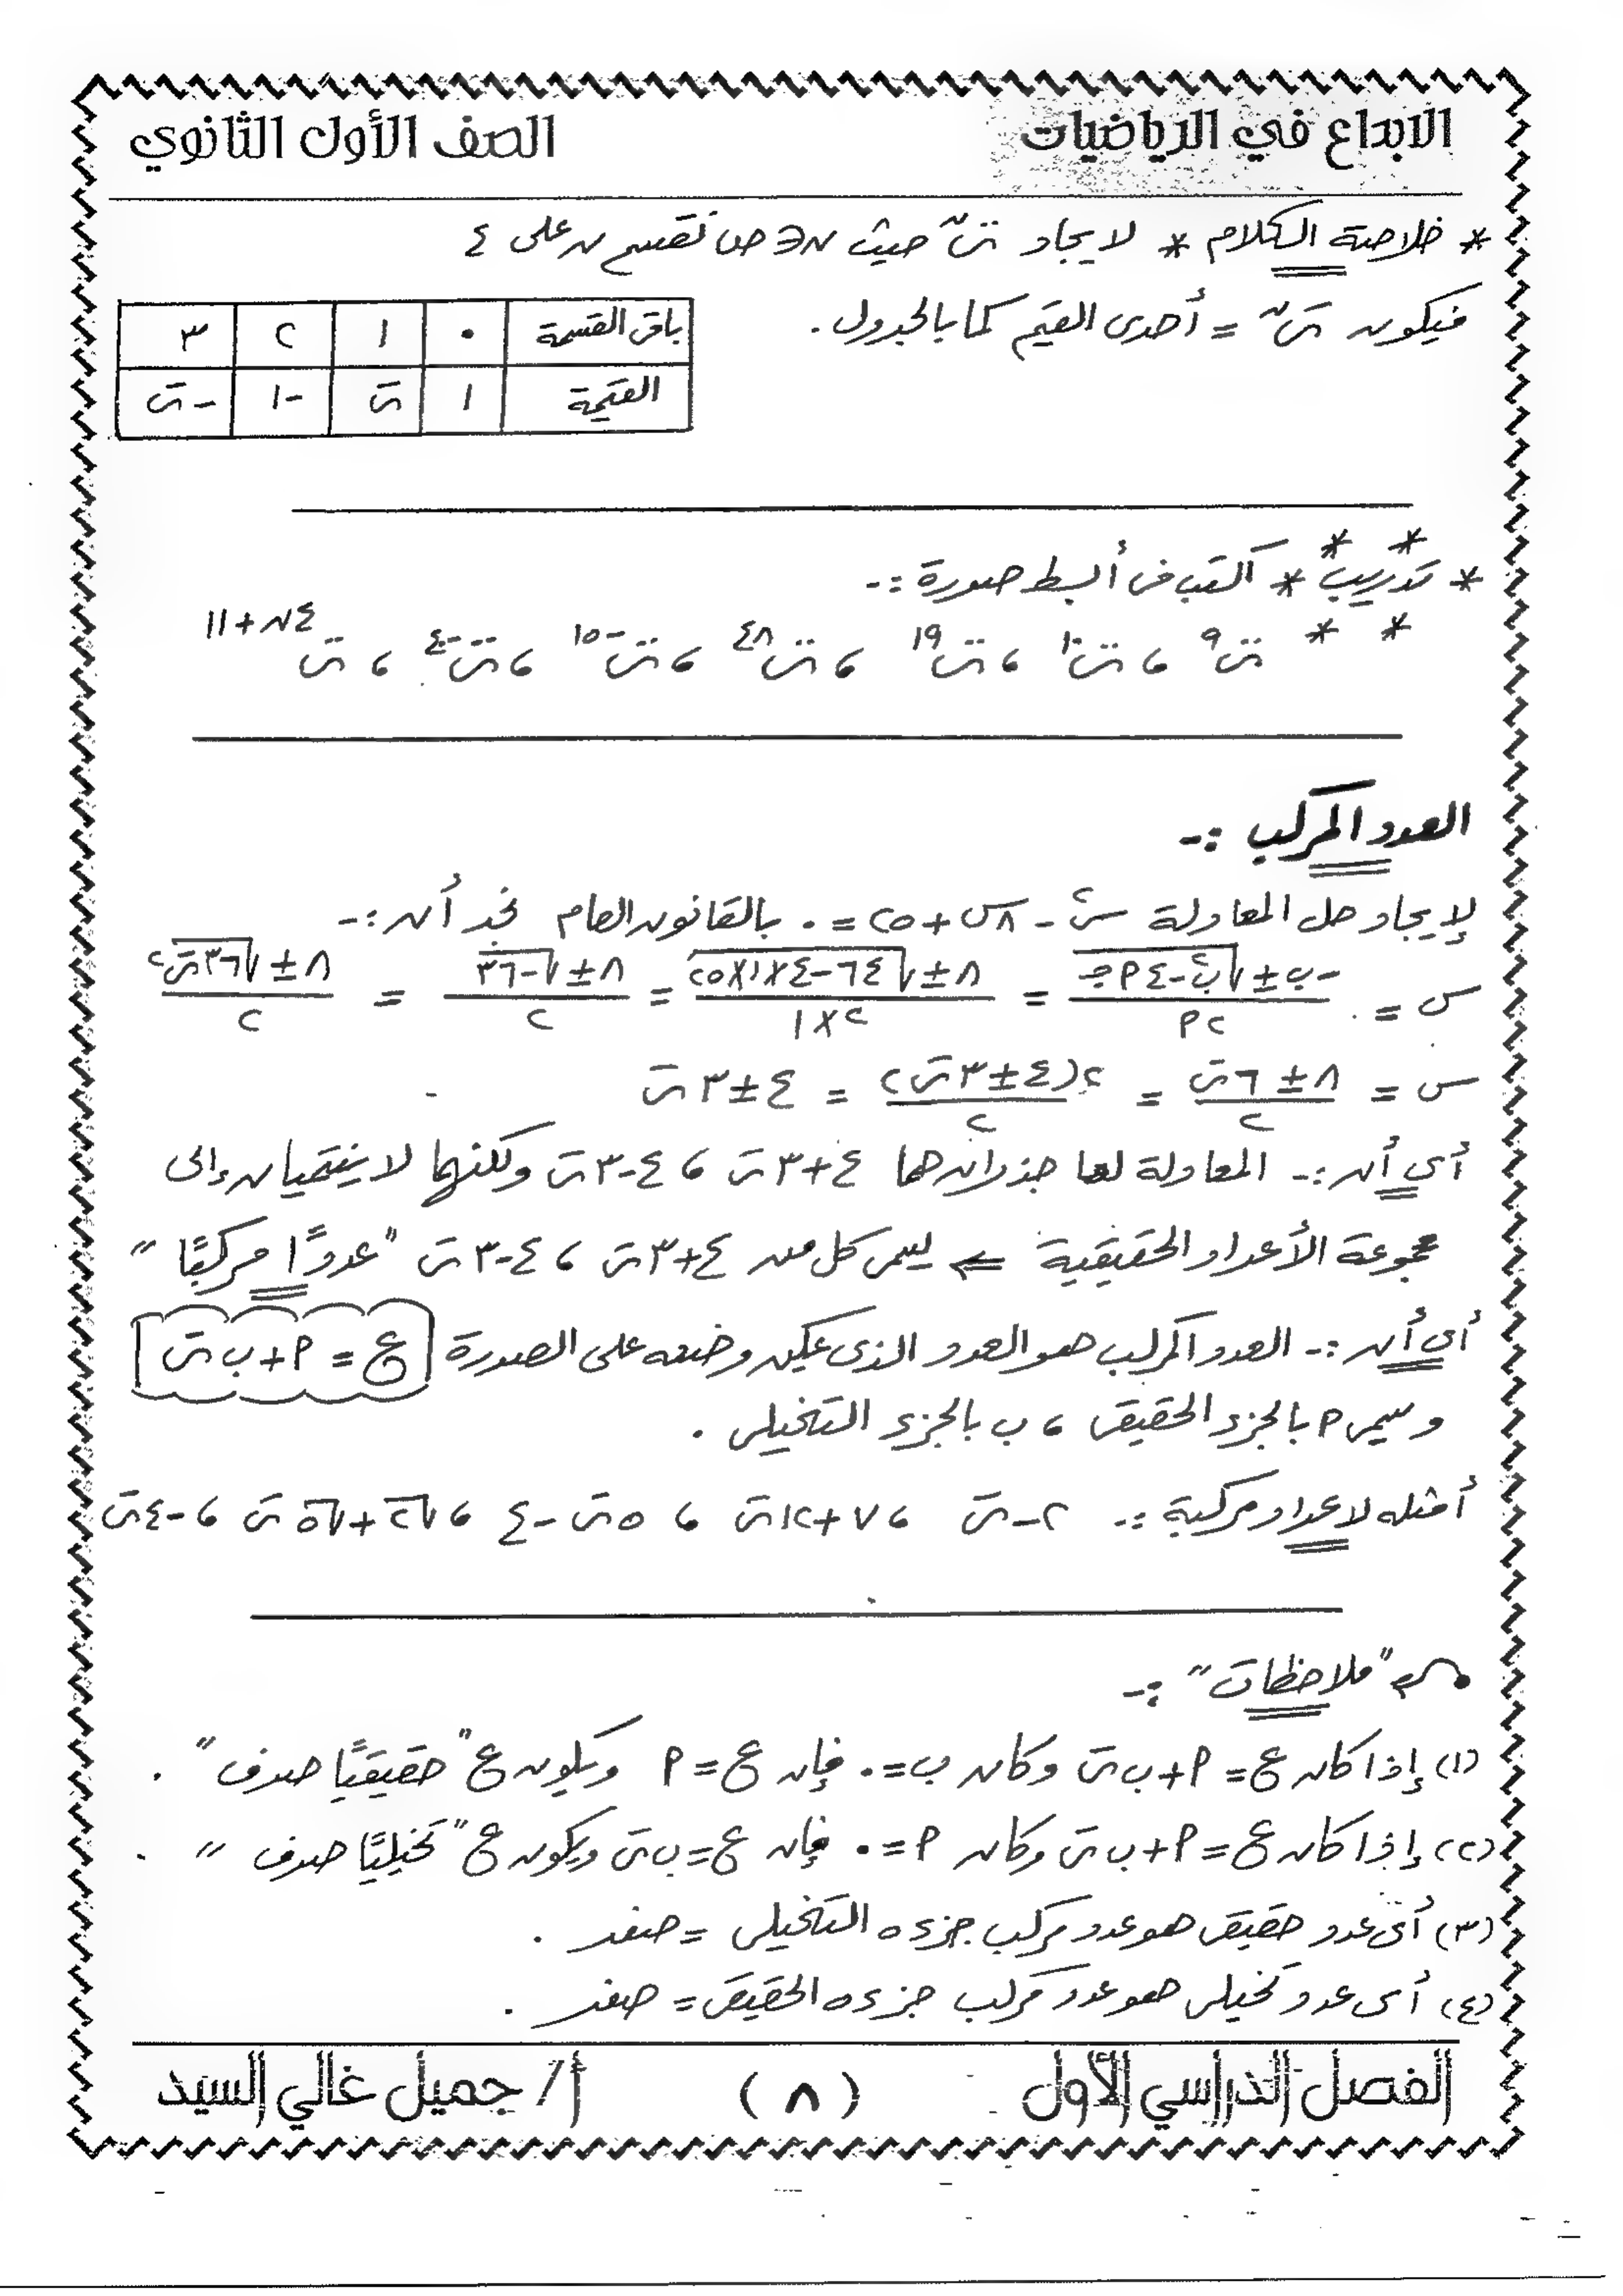 الابداع في الرياضيات
الصف الأول الثانوي
* خلاصة الكلام * لايجاد ت^ن حيث ن ∈ ص نقسم ن على ٤
فيكون ت^ن = أحدى القيم كما بالجدول .
باقى القسمة | ٠ | ١ | ٢ | ٣
القيمة | ١ | ت | -١ | -ت
* تدريب * اكتب فى أبسط صورة :-
ت^٩ ، ت^١٠ ، ت^١٩ ، ت^٤٨ ، ت^-١٥ ، ت^-٤٠ ، ت^(٤ن+١١)
العدد المركب :-
لإيجاد حل المعادلة س^٢ - ٨س + ٢٥ = ٠ بالقانون العام نجد أن :-
س = (-ب ± √(ب^٢ - ٤أجـ)) / ٢أ = (٨ ± √(٦٤ - ٤×١×٢٥)) / ٢×١ = (٨ ± √-٣٦) / ٢ = (٨ ± √٣٦ت^٢) / ٢
س = (٨ ± ٦ت) / ٢ = ٢(٤ ± ٣ت) / ٢ = ٤ ± ٣ت
أى أن :- المعادلة لها جذران هما ٤+٣ت ، ٤-٣ت ولكنهما لا ينتميان إلى
مجموعة الأعداد الحقيقية ⇐ يسمى كل من ٤+٣ت ، ٤-٣ت "عددًا مركبًا"
أى أن :- العدد المركب هو العدد الذى يمكن وضعه على الصورة ع = أ + ب ت
وسمى أ بالجزء الحقيقى ، ب بالجزء التخيلى .
أمثله لاعداد مركبة :- ٢-ت ، ٧+١٢ت ، ٥ت-٤ ، √٢+√٥ ت ، -٤ت
"ملاحظات" :-
(١) إذا كان ع = أ + ب ت وكان ب = ٠ فإن ع = أ ويكون ع "حقيقيًا صرف" .
(٢) إذا كان ع = أ + ب ت وكان أ = ٠ فإن ع = ب ت ويكون ع "تخيليًا صرف" .
(٣) أى عدد حقيقى هو عدد مركب جزءه التخيلى = صفر .
(٤) أى عدد تخيلى هو عدد مركب جزءه الحقيقى = صفر .
الفصل الدراسي الأول
(٨)
أ/ جميل غالي السيد